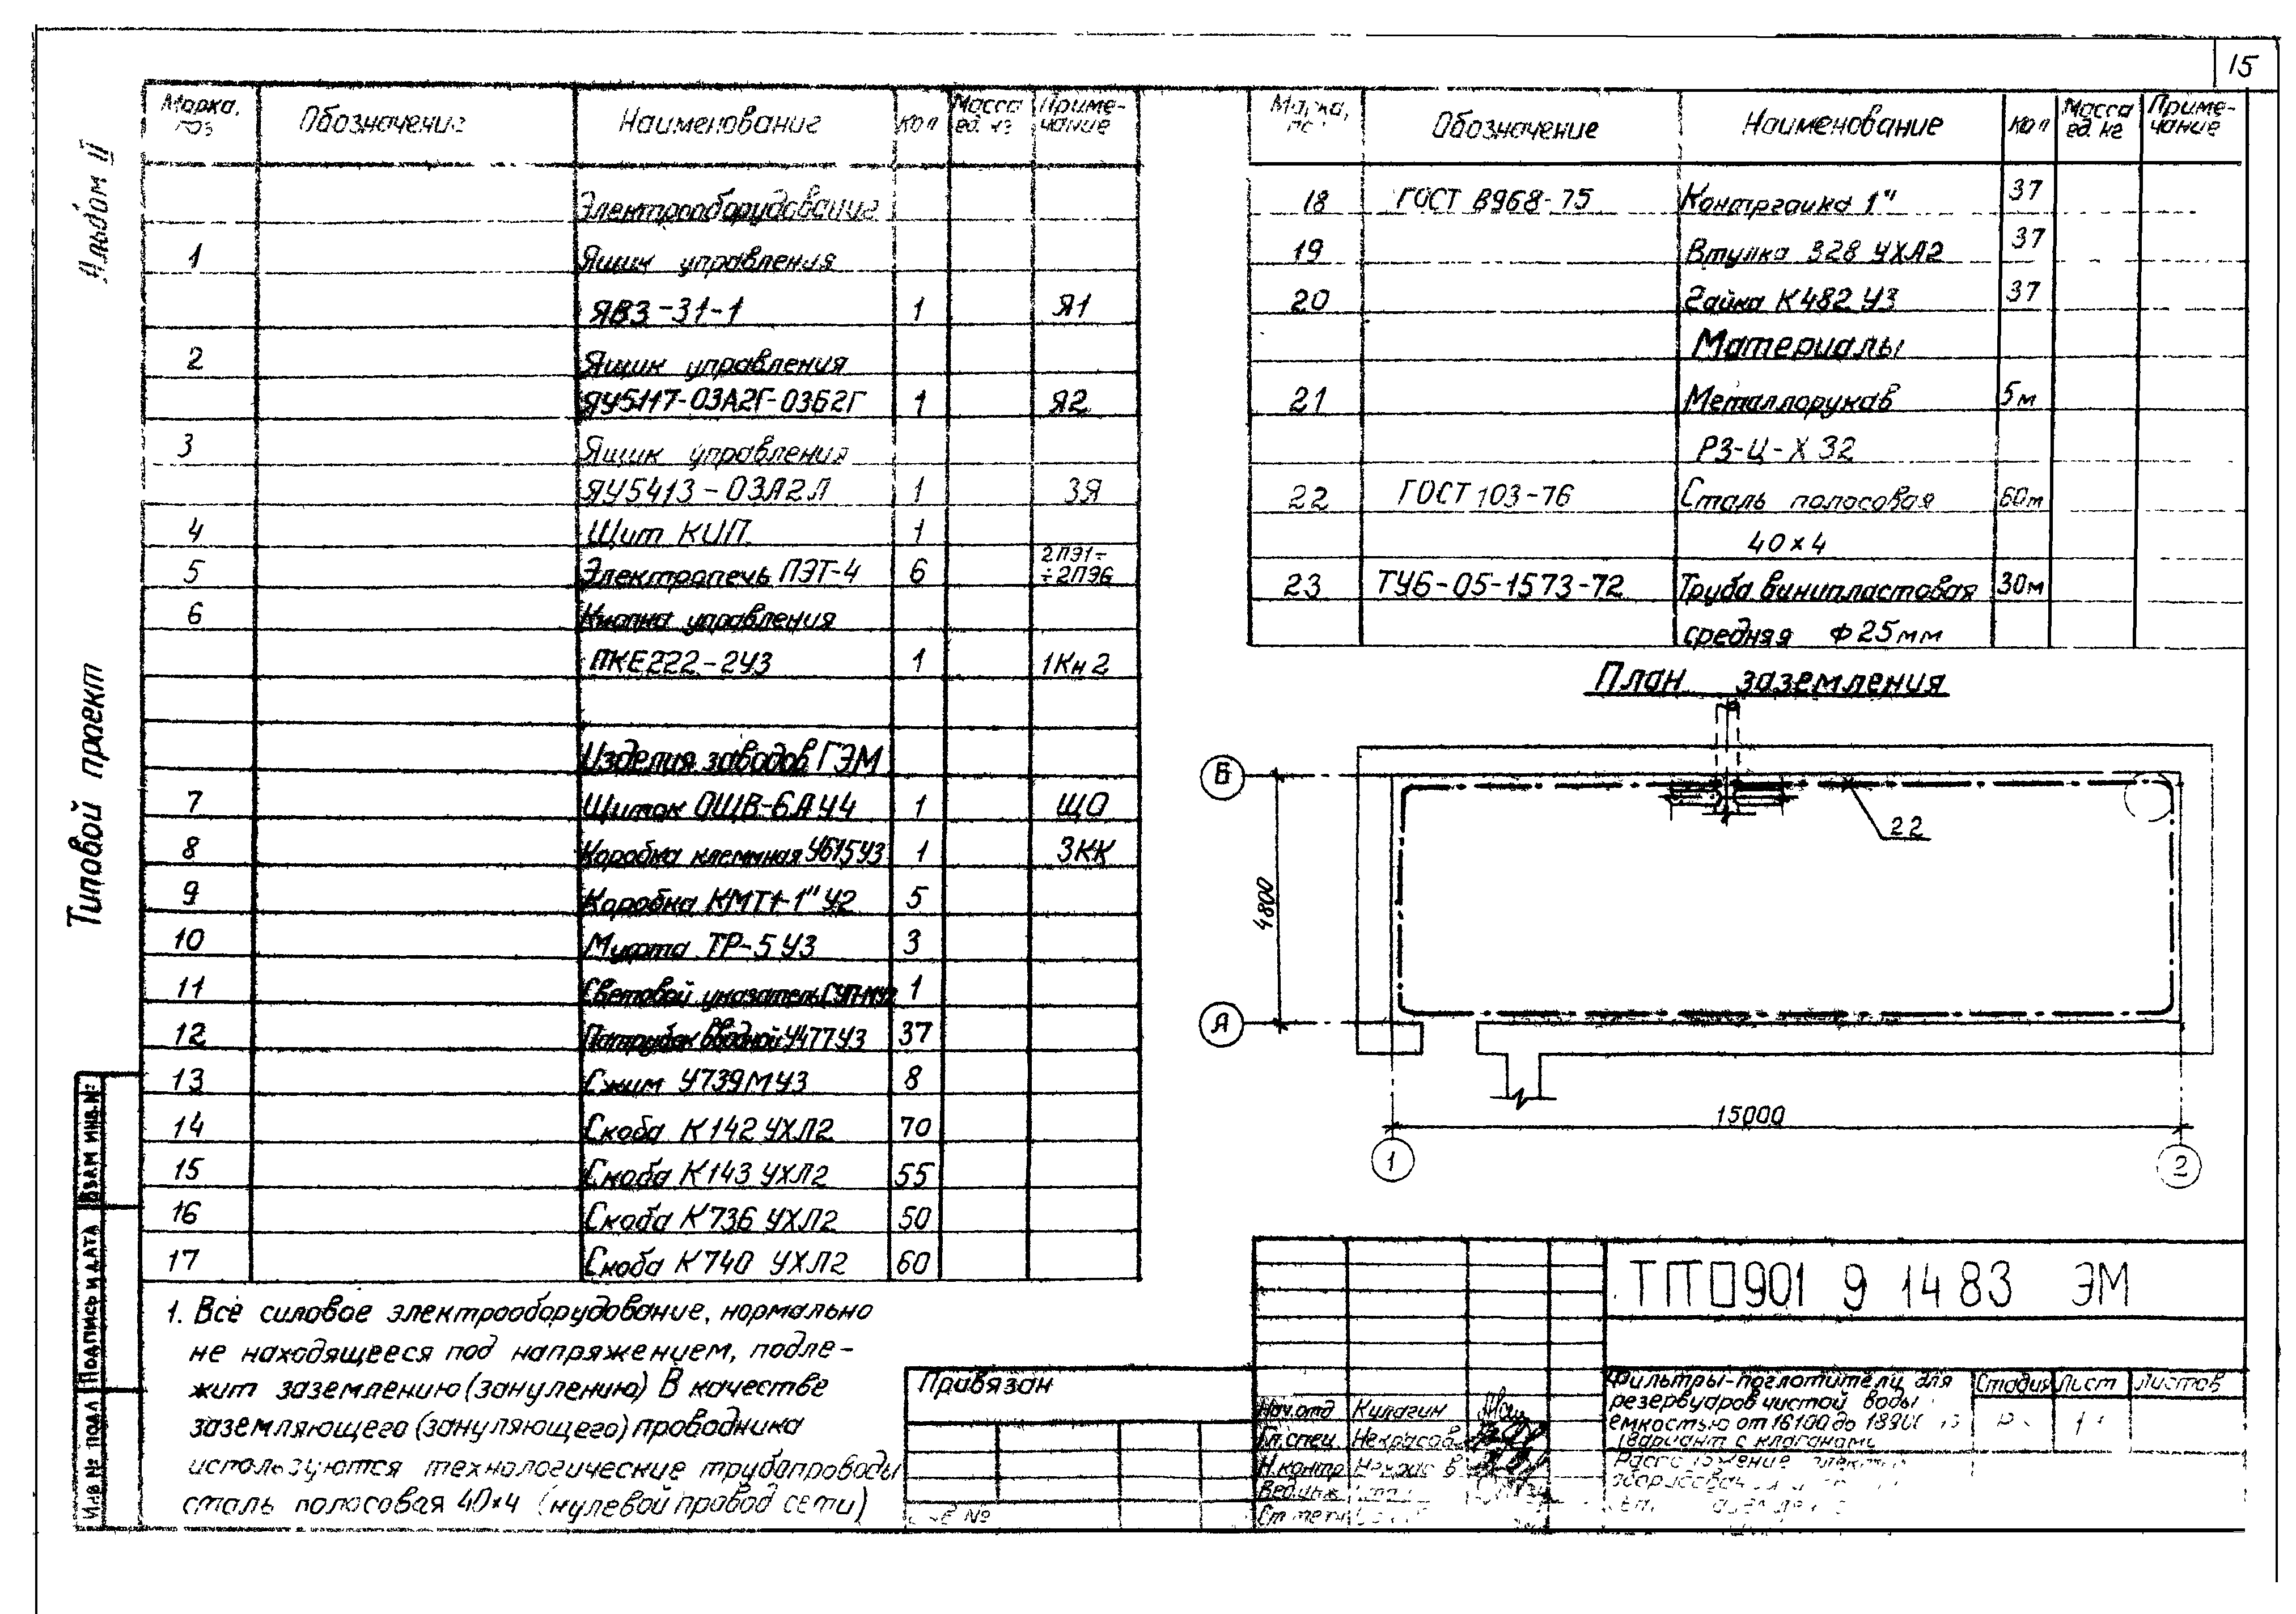 15
Альбом II
Типовой проект
Марка, поз
Обозначение
Наименование
Кол
Масса ед. кг
Приме-
чание
Электрооборудование
1 Ящик управления
ЯВЗ-31-1 1 Я1
2 Ящик управления
ЯУ5117-03А2Г-03Б2Г 1 Я2
3 Ящик управления
ЯУ5413-03А2Л 1 3Я
4 Щит КИП 1
5 Электропечь ПЭТ-4 6 2ПЭ1÷
÷2ПЭ6
6 Кнопка управления
ПКЕ222-2У3 1 1Кн2
Изделия заводов ГЭМ
7 Щиток ОЩВ-6АУ4 1 ЩО
8 Коробка клеммная У615У3 1 3КК
9 Коробка КМТ1-1" У2 5
10 Муфта ТР-5У3 3
11 Световой указатель 1
12 Патрубок вводной У477У3 37
13 Сжим У739МУ3 8
14 Скоба К142УХЛ2 70
15 Скоба К143УХЛ2 55
16 Скоба К736УХЛ2 50
17 Скоба К740 УХЛ2 60
Марка,
Обозначение
Наименование
Кол
Масса ед. кг
Приме-
чание
18 ГОСТ 8968-75 Контргайка 1" 37
19 Втулка 328 УХЛ2 37
20 Гайка К482 У3 37
Материалы
21 Металлорукав 5м
РЗ-Ц-Х 32
22 ГОСТ 103-76 Сталь полосовая 60м
40×4
23 ТУ6-05-1573-72 Труба винипластовая 30м
средняя Ф25мм
План заземления
Б
22
4800
А
15000
1
2
1. Всё силовое электрооборудование, нормально
не находящееся под напряжением, подле-
жит заземлению (занулению) В качестве
заземляющего (зануляющего) проводника
используются технологические трубопроводы
сталь полосовая 40×4 (нулевой провод сети)
Взам инв.№
Подпись и дата
Инв № подл
Привязан
№
Нач.отд Кулагин
Гл.спец
Н.контр
Вед.инж
Ст техн
ТПО901 9 14 83 ЭМ
Фильтры-поглотители для
резервуаров чистой воды
емкостью от 16100 до
(вариант с клапанами
Стадия Лист Листов